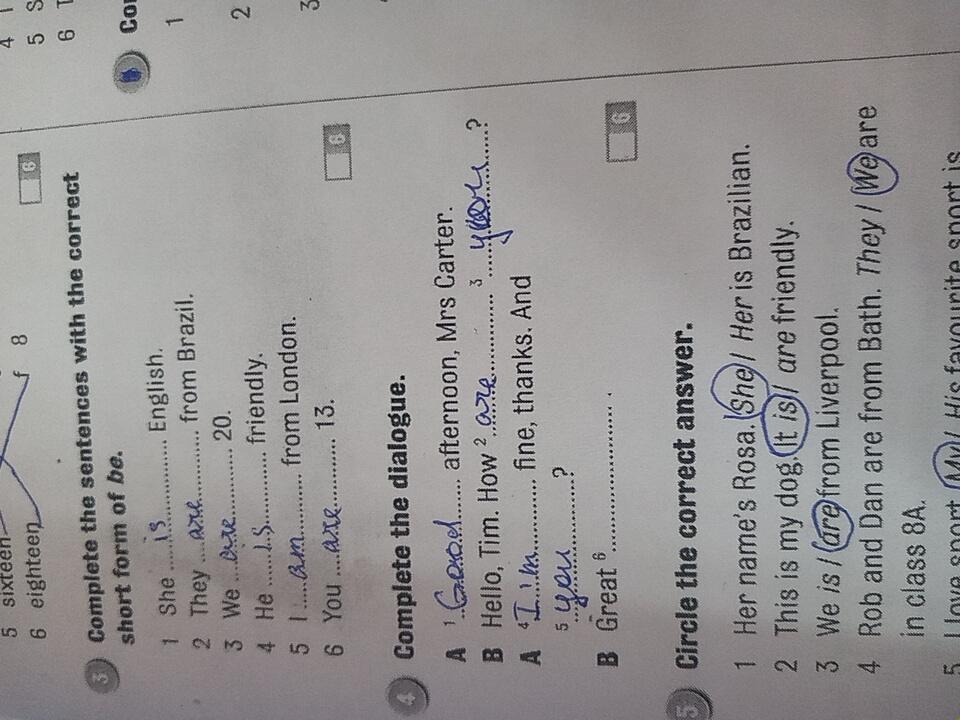 4
5 S
6 T
5 sixteen
6 eighteen
f 8
6
3 Complete the sentences with the correct
short form of be.
1 She is English.
2 They are from Brazil.
3 We are 20.
4 He is friendly.
5 I am from London.
6 You are 13.
8
1
2
3
4 Complete the dialogue.
A 1 Good afternoon, Mrs Carter.
B Hello, Tim. How 2 are 3 you ?
A 4 I'm fine, thanks. And
5 you ?
B Great 6 .
6
5 Circle the correct answer.
1 Her name's Rosa. She / Her is Brazilian.
2 This is my dog. It is / are friendly.
3 We is / are from Liverpool.
4 Rob and Dan are from Bath. They / We are
in class 8A.
5 I love sport. My / His favourite sport is